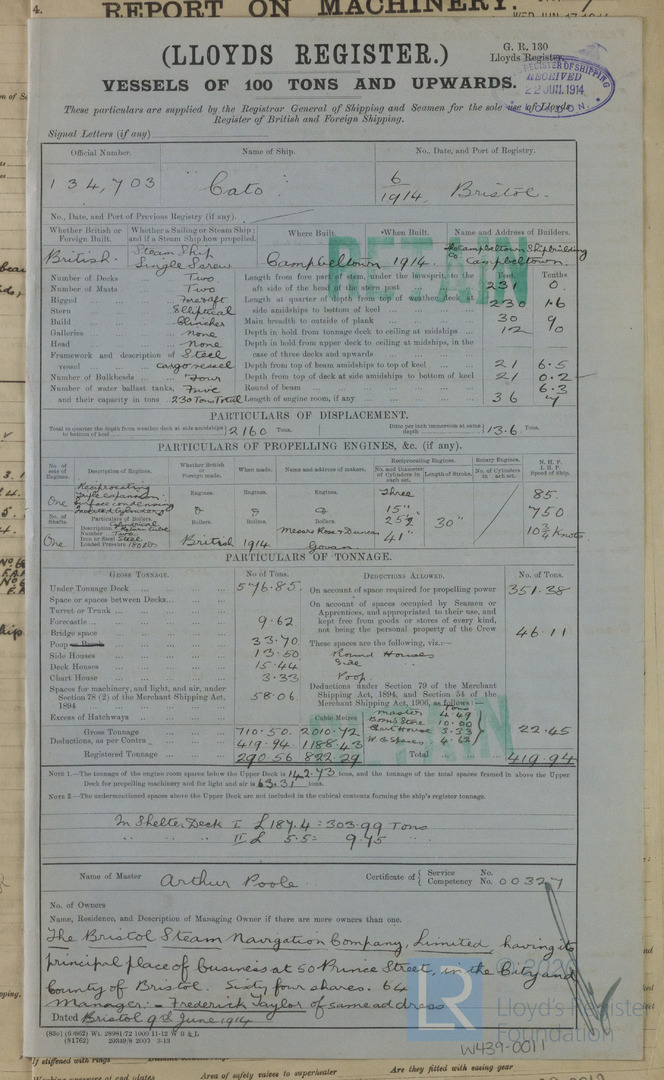 4. REPORT ON MACHINERY.
(LLOYDS REGISTER.)
G. R. 130
Lloyds Register.
REGISTER OF SHIPPING
RECEIVED
22 JUN. 1914
LONDON
VESSELS OF 100 TONS AND UPWARDS.
These particulars are supplied by the Registrar General of Shipping and Seamen for the sole use of Lloyds
Register of British and Foreign Shipping.
Signal Letters (if any)
Official Number. Name of Ship. No., Date, and Port of Registry.
134,703 "Cato" 6/1914 Bristol.
No., Date, and Port of Previous Registry (if any).
Whether British or Foreign Built. Whether a Sailing or Steam Ship; and if a Steam Ship how propelled. Where Built. When Built. Name and Address of Builders.
British. Steam Ship Single Screw Campbeltown 1914. The Campbeltown Shipbuilding Co. Campbeltown.
RETAIN
Feet. Tenths
Number of Decks Two Length from fore part of stem, under the bowsprit, to the aft side of the head of the stern post 231 0.
Number of Masts Two
Rigged Fore & aft Length at quarter of depth from top of weather deck at side amidships to bottom of keel 230 1.6
Stern Elliptical
Build Clincher Main breadth to outside of plank 30 9
Galleries None Depth in hold from tonnage deck to ceiling at midships 12 90
Head None Depth in hold from upper deck to ceiling at midships, in the case of three decks and upwards
Framework and description of vessel Steel cargo vessel
Depth from top of beam amidships to top of keel 21 6.5
Number of Bulkheads Four Depth from top of deck at side amidships to bottom of keel 21 0.2
Number of water ballast tanks, Five Round of beam 6.3
and their capacity in tons 230 Tons Total Length of engine room, if any 36 7
PARTICULARS OF DISPLACEMENT.
Total to quarter the depth from weather deck at side amidships to bottom of keel 2160 Tons. Ditto per inch immersion at same depth 13.6 Tons.
PARTICULARS OF PROPELLING ENGINES, &c. (if any).
No. of sets of Engines. Description of Engines. Whether British or Foreign made. When made. Name and address of makers. Reciprocating Engines. No. and Diameter of Cylinders in each set. Length of Stroke. Rotary Engines. No. of Cylinders in each set. N.H.P. I.H.P. Speed of Ship.
One Reciprocating Triple expansion Surface condensing Inverted Cylinders Engines. Engines. Engines. Three 15" 25½" 41" 30" 85. 750 10¾ Knots
No. of Shafts. Particulars of Boilers. Boilers. Boilers. Boilers.
One Description Number Two Iron or Steel Steel Loaded Pressure 180 lbs British 1914 Messrs Ross & Duncan Govan.
PARTICULARS OF TONNAGE.
GROSS TONNAGE. No of Tons. DEDUCTIONS ALLOWED. No. of Tons.
Under Tonnage Deck 576.85. On account of space required for propelling power 351.38
Space or spaces between Decks
Turret or Trunk
Forecastle 9.62
Bridge space
On account of spaces occupied by Seamen or Apprentices, and appropriated to their use, and kept free from goods or stores of every kind, not being the personal property of the Crew 46.11
Poop 33.70 These spaces are the following, viz.:—
Side Houses 13.50 Round Houses
Deck Houses 15.44 Side
Chart House 3.33 Poop.
Spaces for machinery, and light, and air, under Section 78 (2) of the Merchant Shipping Act, 1894 58.06
Deductions under Section 79 of the Merchant Shipping Act, 1894, and Section 54 of the Merchant Shipping Act, 1906, as follows:—
Excess of Hatchways
Cubic Metres
Tons
Master 4.49
Boatn Store 10.00
Chart House 3.33
W.B. Spaces 4.63
22.45
Gross Tonnage 710.50 2010.72
Deductions, as per Contra 419.94 1188.43
Registered Tonnage 290.56 822.29 Total 419.94
RETAIN
NOTE 1.—The tonnage of the engine room spaces below the Upper Deck is 142.73 tons, and the tonnage of the total spaces framed in above the Upper
Deck for propelling machinery and for light and air is 63.31 tons.
NOTE 2.—The undermentioned spaces above the Upper Deck are not included in the cubical contents forming the ship's register tonnage.
In Shelter Deck I £ 187.4 = 303.99 Tons
" " " II £ 5.5 = 9.45 "
Name of Master Arthur Poole. Certificate of { Service No. Competency No. 00327
No. of Owners
Name, Residence, and Description of Managing Owner if there are more owners than one.
The Bristol Steam Navigation Company, Limited, having its
principal place of business at 50 Prince Street, in the City and
County of Bristol. Sixty four shares. 64
Manager:- Frederick Taylor of same address
Dated Bristol 9th June 1914
(83c) (6/662) Wt. 28981/72 1000 11-12 W B & L
(81762) 29349/8 2000 3-13
© 2020
LR
Lloyd's Register
Foundation
W439-0011
If stiffened with rings
Area of safety valves to superheater Are they fitted with easing gear